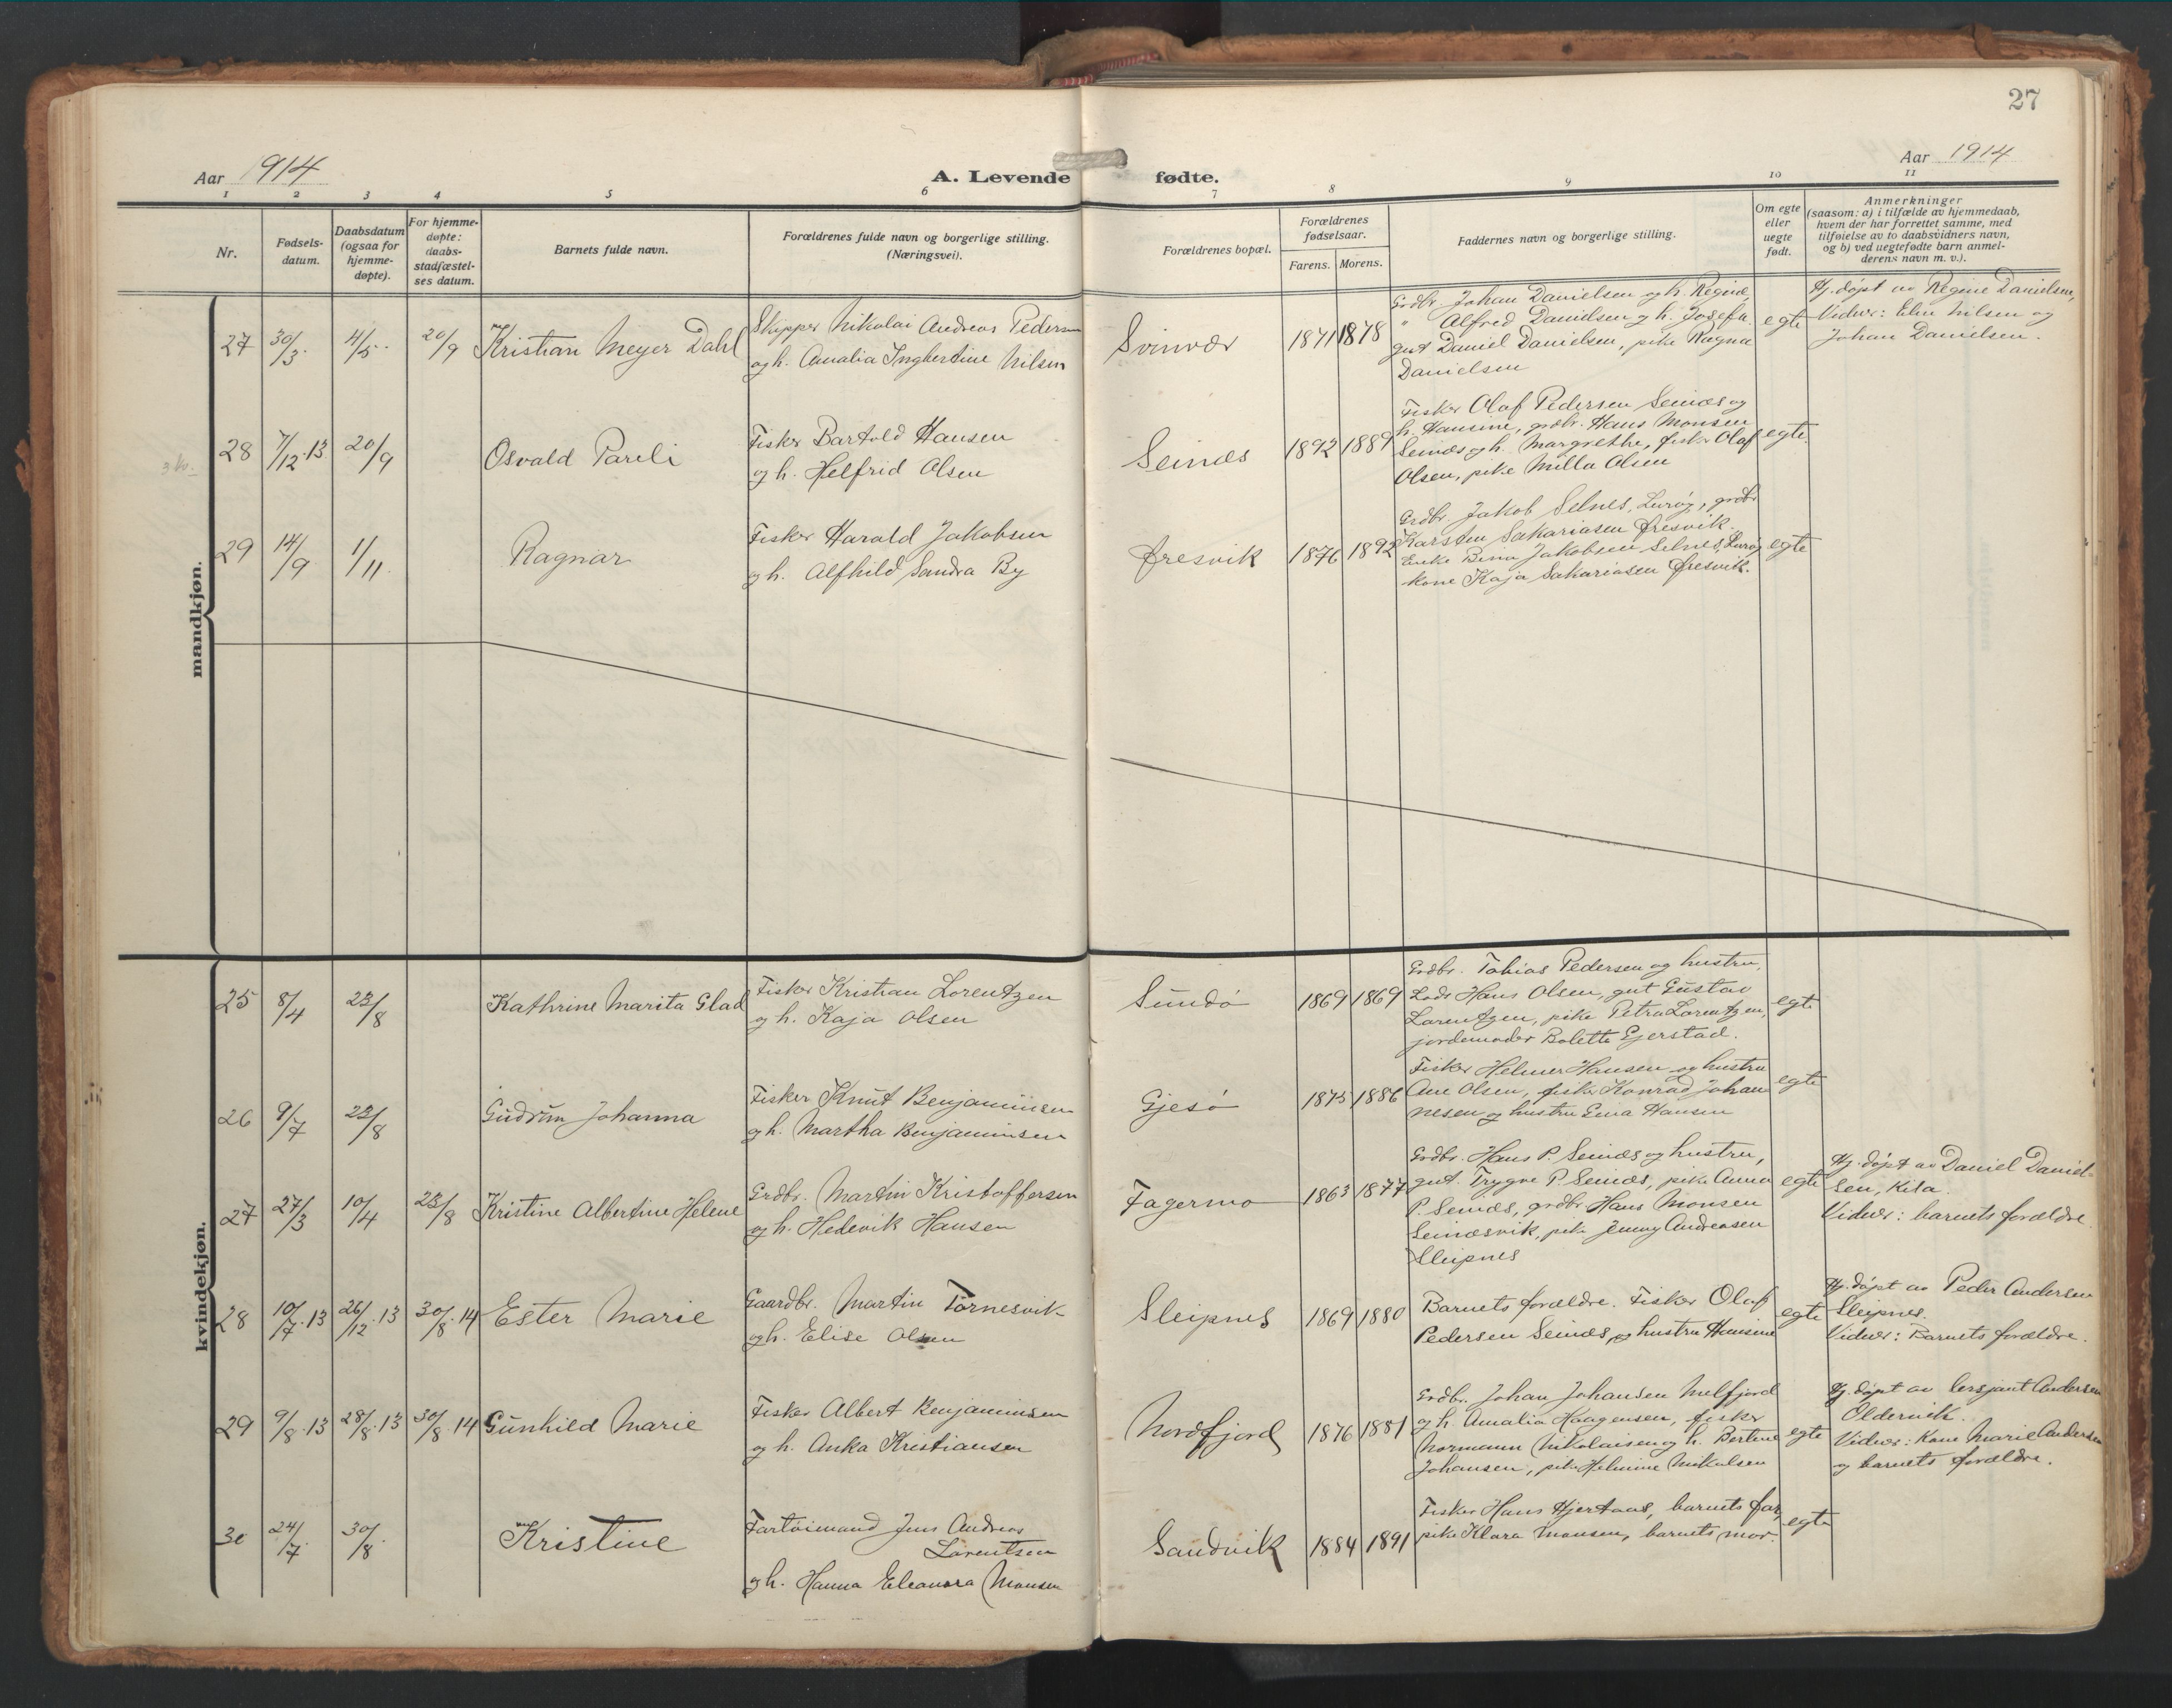 27
Aar 1914
A. Levende fødte.
Aar 1914
1 2 3 4 5 6 7 8 9 10 11
Nr.
Fødsels-
datum.
Daabsdatum
(ogsaa for
hjemme-
døpte).
For hjemme-
døpte:
daabs-
stadfæstel-
ses datum.
Barnets fulde navn.
Forældrenes fulde navn og borgerlige stilling.
(Næringsvei).
Forældrenes bopæl.
Forældrenes
fødselsaar.
Farens. Morens.
Faddernes navn og borgerlige stilling.
Om egte
eller
uegte
født.
Anmerkninger
(saasom: a) i tilfælde av hjemmedaab,
hvem der har forrettet samme, med
tilføielse av to daabsvidners navn,
og b) ved uegtefødte barn anmel-
derens navn m. v.).
mandkjøn.
27 30/3. 4/5. 20/9 Kristian Meyer Dahl
Skipper Nikolai Andreas Pedersen
og h. Amalia Ingbertine Nilsen
Svinvær 1871 1878
Grdbr. Johan Danielsen og h. Regine,
" Alfred Danielsen og h. Josefa
gut Daniel Danielsen, pike Ragna
Danielsen
egte
Hj. døpt av Regine Danielsen,
Vidner: Elen Nilsen og
Johan Danielsen.
28 7/12.13 20/9 Osvald Pareli
Fisker Bartold Hansen
og h. Helfrid Olsen
Seinæs 1892 1889
Fisker Olaf Pedersen Seinæs og
h. Hansine, grdbr. Hans Monsen
Seinæs og h. Margrethe, fisker Olaf
Olsen, pike Milla Olsen
egte.
29 14/9 1/11. Ragnar
Fisker Harald Jakobsen
og h. Alfhild Sandra By
Øresvik 1876 1892
Grdbr. Jakob Selnes, Lurøy, grdbr
Karsten Sakariasen Øresvik.
Enke Bina Jakobsen Selnes, Lurøy
kone Kaja Sakariasen Øresvik.
egte
kvindekjøn.
25 8/4 23/8 Kathrine Marita Glad
Fisker Kristian Lorentzen
og h. Kaja Olsen
Sundø 1869 1869
Grdbr. Tobias Pedersen og hustru,
Lods Hans Olsen, gut Gustav
Lorentzen, pike Petra Lorentzen,
jordemoder Bolette Ejerstad.
egte
26 9/7 23/8 Gudrun Johanna
Fisker Knut Benjaminsen
og h. Martha Benjaminsen
Gjesø 1875 1886
Fisker Helmer Hansen og hustru
Ane Olsen, fisker Konrad Johan
nesen og hustru Gina Hansen
egte
27 27/3 10/4 23/8 Kristine Albertine Helene
Grdbr. Martin Kristoffersen
og h. Hedevik Hansen
Fagermo 1863 1877
Grdbr. Hans P. Seinæs og hustru,
gut. Trygve P. Seinæs, pike Anna
P. Seinæs, grdbr. Hans Monsen
Seinæsvik, pike Jenny Andreasen
Sleipnes
egte
Hj. døpt av Daniel Daniel-
sen, Kila.
Vidner: barnets forældre.
28 10/7.13 26/12.13 30/8.14 Ester Marie
Gaardbr. Martin Tornesvik
og h. Elise Olsen
Sleipnes 1869 1880
Barnets forældre. Fisker Olaf
Pedersen Seinæs, og hustru Hansine
egte
Hj. døpt av Peder Andersen
Sleipnes.
Vidner: Barnets forældre.
29 9/8.13 28/8.13 30/8.14 Gunhild Marie
Fisker Albert Benjaminsen
og h. Anka Kristiansen
Nordfjord 1876 1881
Grdbr. Johan Johansen Melfjord
og h. Amalia Haagensen, fisker
Normann Nikolaisen og h. Bertine
Johansen, pike Helmine Mikalsen
egte
Hj. døpt av Sersjant Andersen
Oldervik.
Vidner: Kone Marie Andersen
og barnets forældre.
30 24/7. 30/8. Kristine
Fartøimand Jens Andreas
Lorentsen
og h. Hanna Eleanora Monsen
Sandvik 1884 1891
Fisker Hans Hjertaas, barnets far,
pike Klara Monsen, barnets mor.
egte